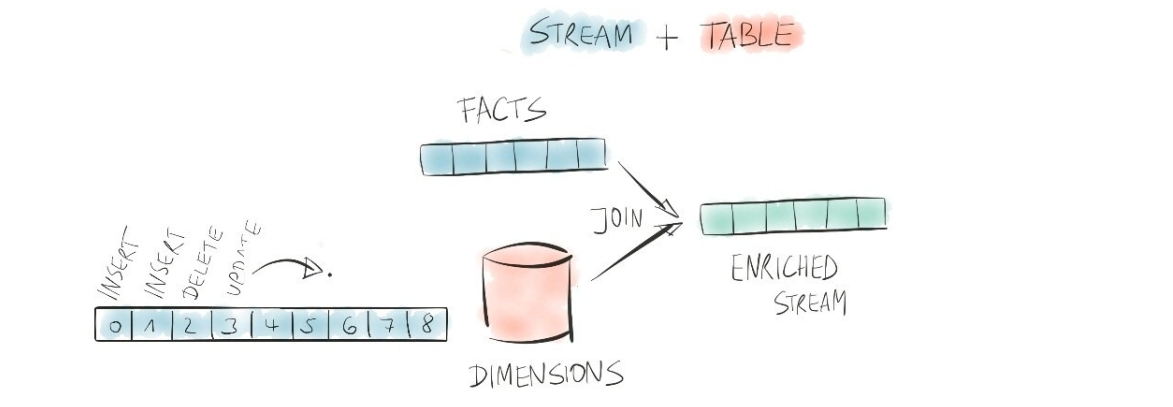 STREAM + TABLE
FACTS
JOIN
ENRICHED
STREAM
INSERT
INSERT
DELETE
UPDATE
0 1 2 3 4 5 6 7 8
DIMENSIONS